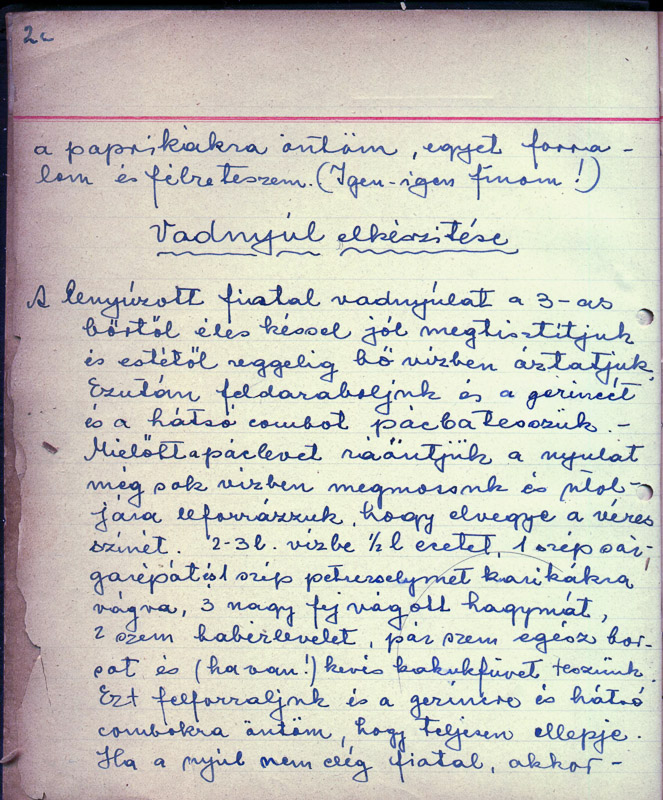 2c
a paprikákra öntöm, egyet forra-
lom és félreteszem. (Igen-igen finom!)
Vadnyúl elkészitése
A lenyúzott fiatal vadnyúlat a 3-as
bőrtől éles késsel jól megtisztitjuk
és estétől reggelig bő vizben áztatjuk.
Ezután feldaraboljuk és a gerincét
és a hátsó combot pácbatesszük.-
Mielőtt a páclevet ráöntjük a nyulat
még sok vizben megmossuk és útol-
jára leforrázzuk, hogy elvegye a véres
szinét. 2-3 l. vizbe ½ l ecetet, 1 szép sár-
garépát és 1 szép petrezselymet karikákra
vágva, 3 nagy fej vágott hagymát,
2 szem babérlevelet, pár szem egész bor-
sot és (ha van!) kevés kakukfüvet teszünk.
Ezt felforraljuk és a gerincre és hátsó
combokra öntöm, hogy teljesen ellepje.
Ha a nyúl nem elég fiatal, akkor-